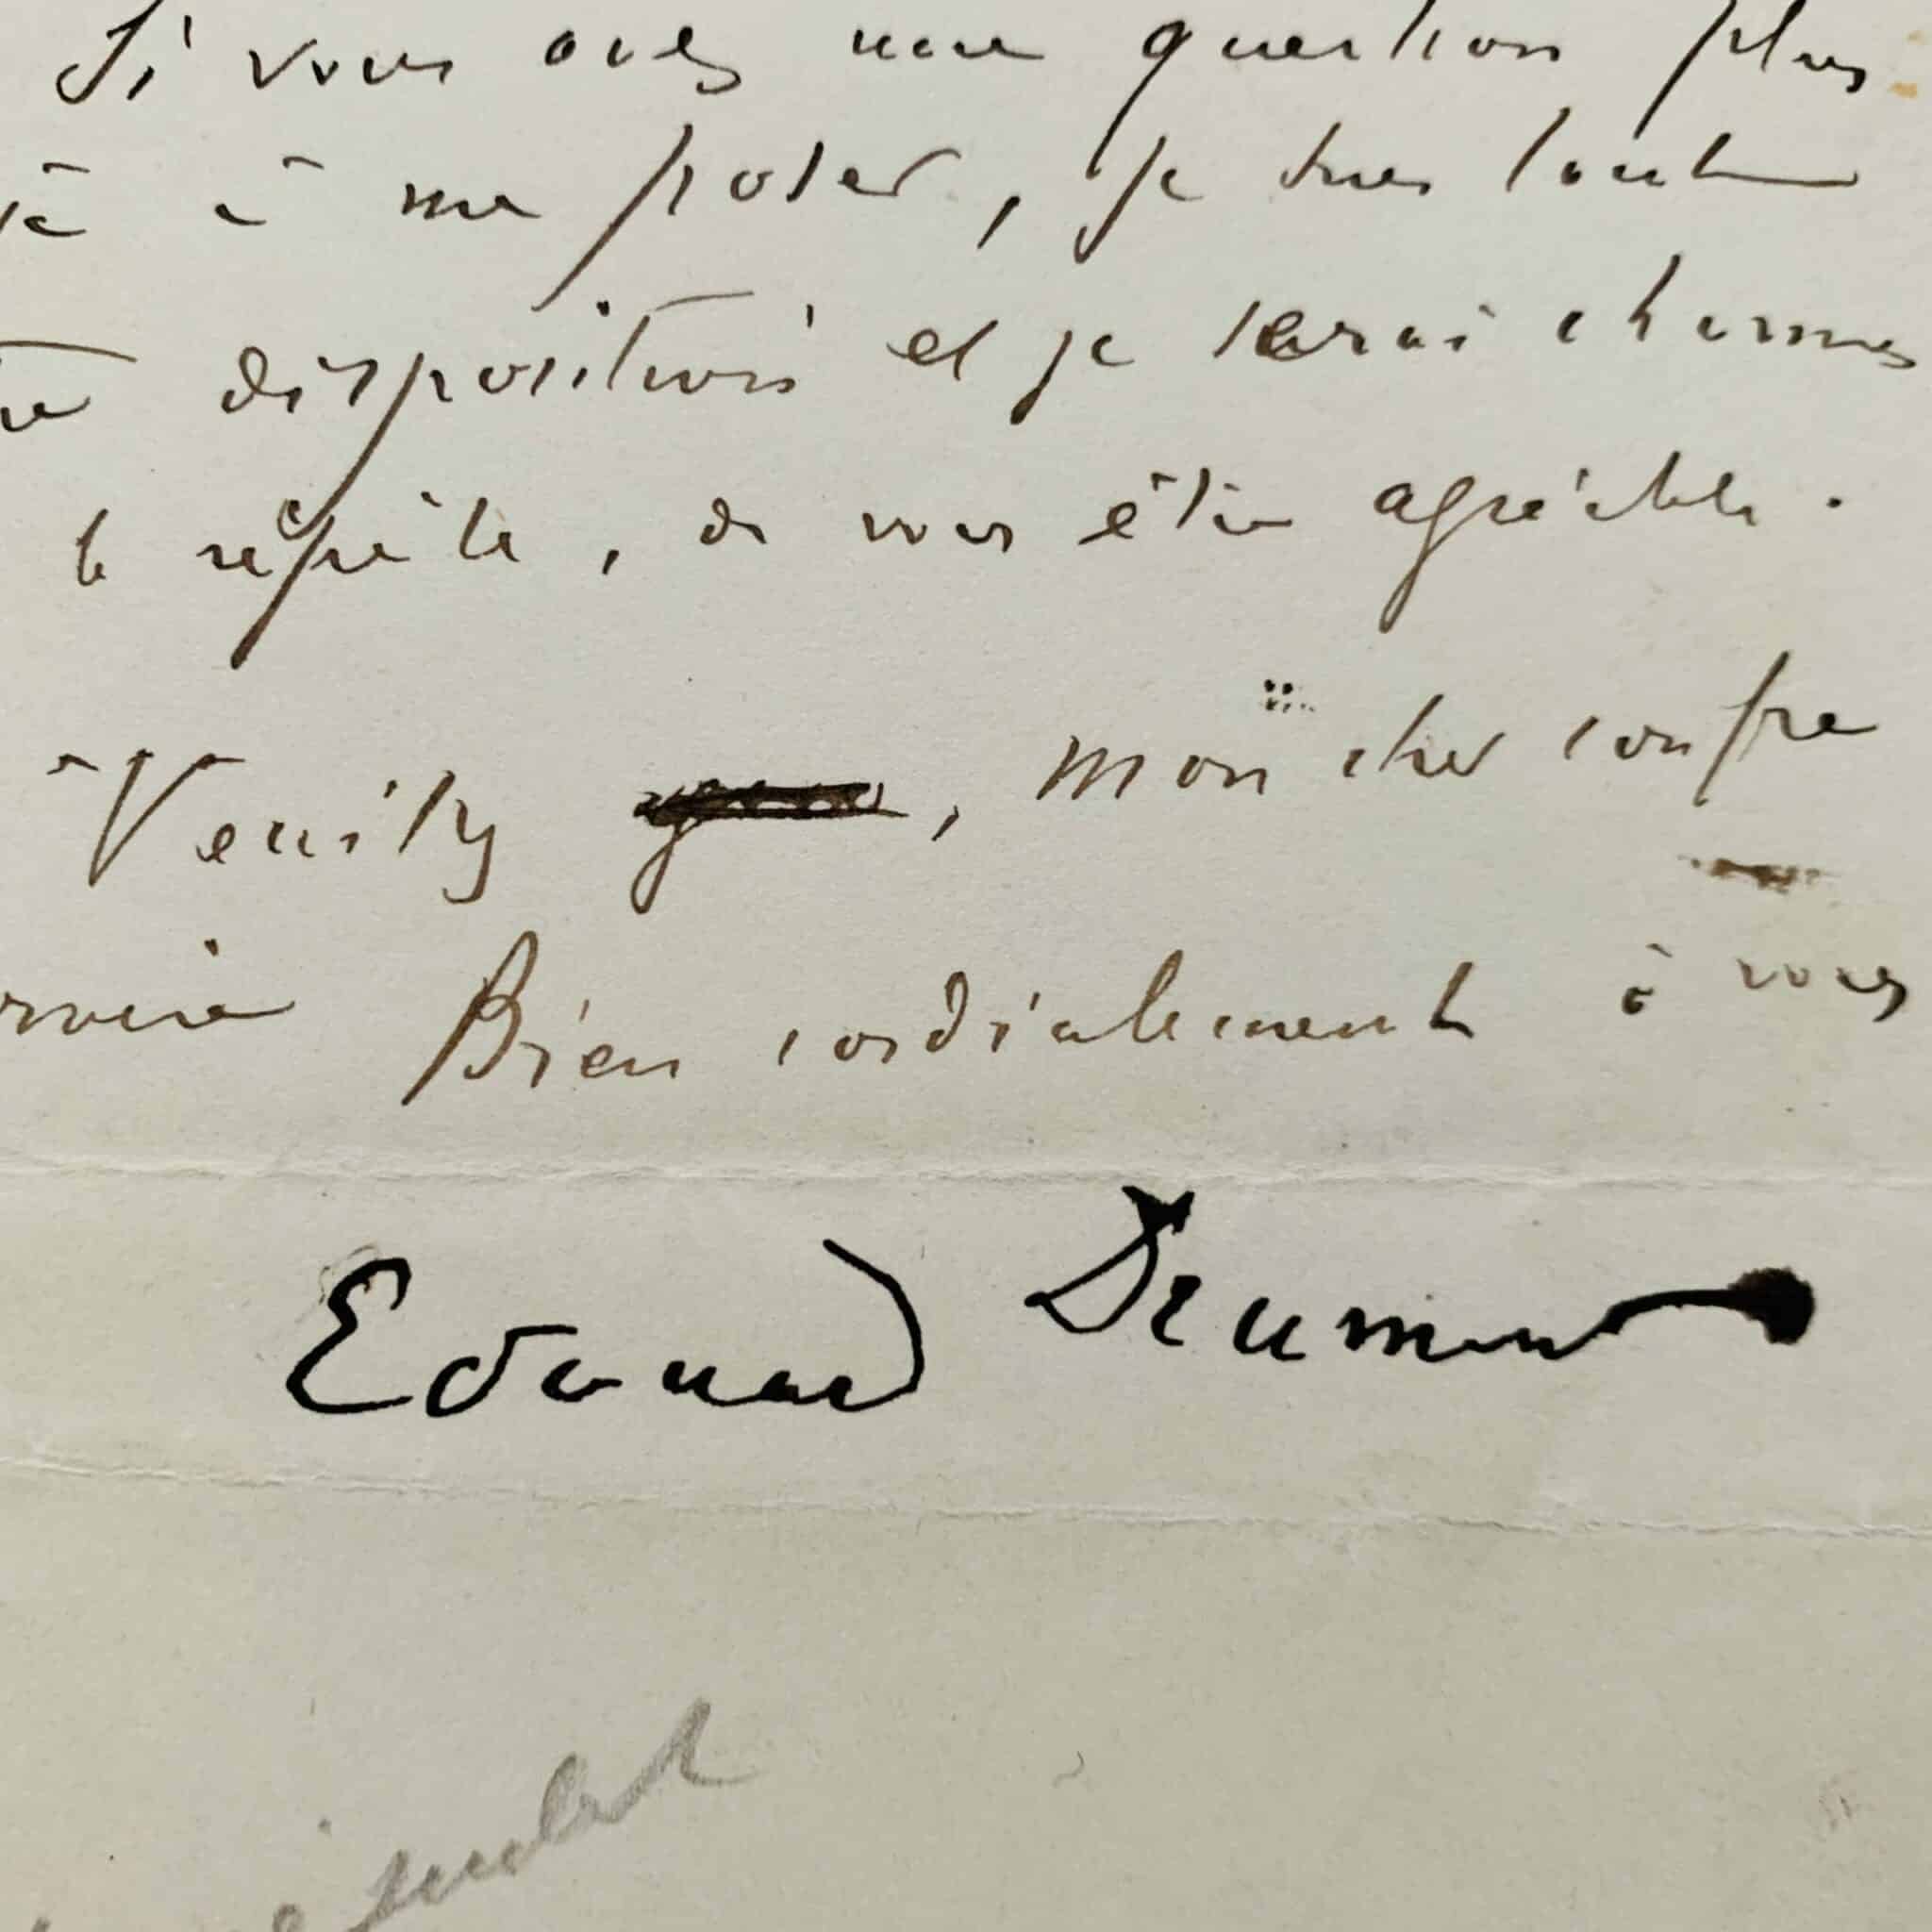 Si vous avez une question plus
à me poser, je suis toute
disposition et je serai charmé
le répète, de vous être agréable.
Veuillez, mon cher confre
Bien cordialement à vous
Edouard Drumont